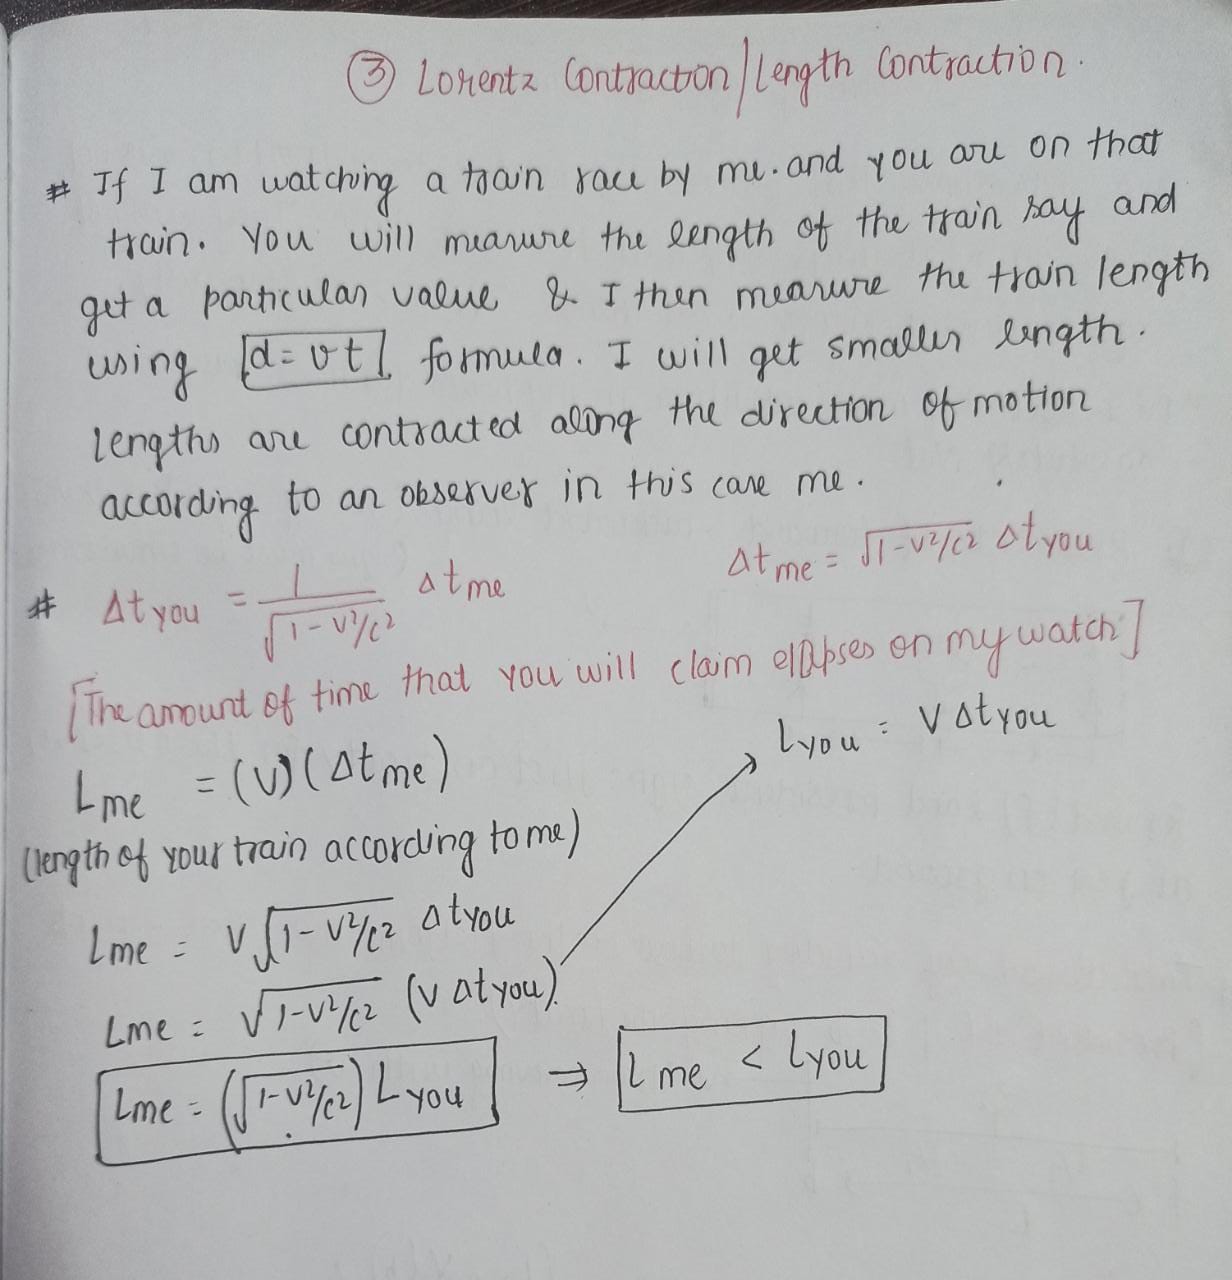 ③ Lorentz Contraction/Length Contraction.
# If I am watching a train race by me. and you are on that
train. You will measure the length of the train say and
get a particular value & I then measure the train length
using d = vt formula. I will get smaller length.
lengths are contracted along the direction of motion
according to an observer in this case me.
# Δt you = 1/√1-v²/c² Δt me    Δt me = √1-v²/c² Δt you
[The amount of time that you will claim elapses on my watch]
L me = (v)(Δt me)    L you = V Δt you
(length of your train according to me)
L me = V √1-v²/c² Δt you
L me = √1-v²/c² (v Δt you).
L me = (√1-v²/c²) L you ⇒ L me < L you